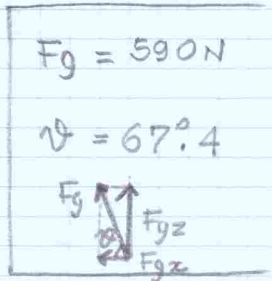 Fg = 590N
ϑ = 67°.4
Fg
Fgz
ϑ
Fgx